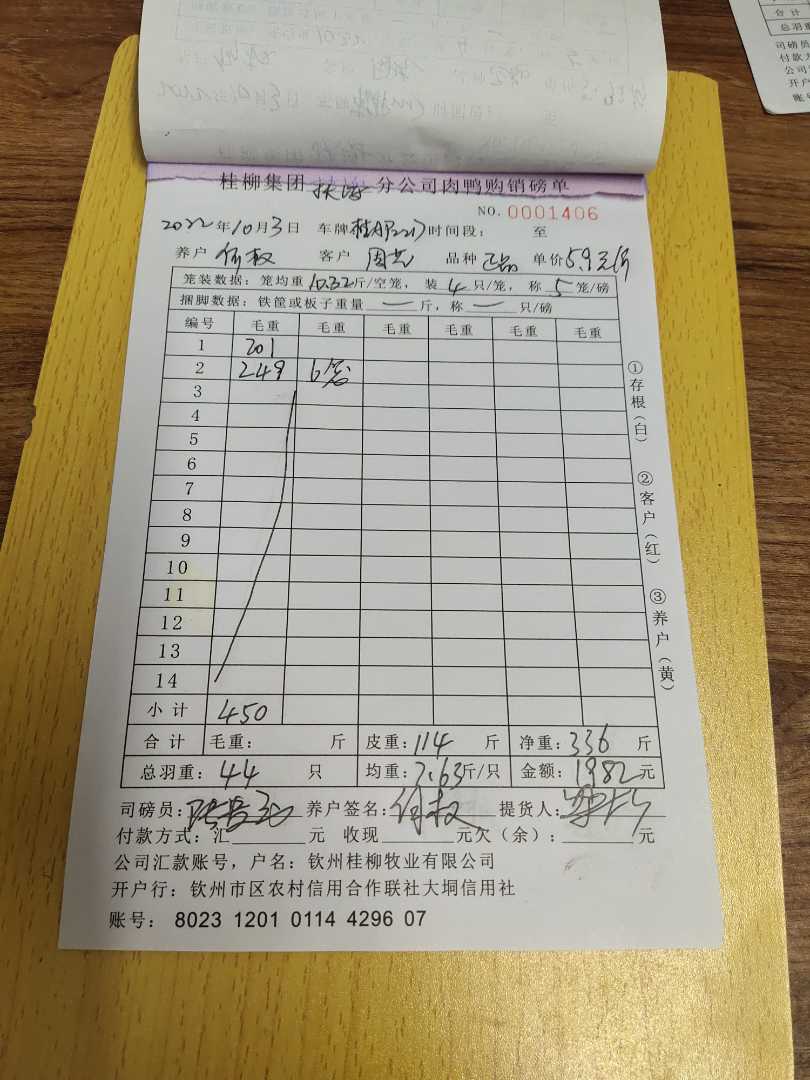 桂柳集团 扶绥 分公司肉鸭购销磅单
NO. 0001406
2022年10月3日 车牌 时间段: 至
养户 何权 客户 周 品种 正品 单价5.9元/斤
笼装数据: 笼均重10.32斤/空笼, 装4只/笼, 称5笼/磅
捆脚数据: 铁筐或板子重量 — 斤, 称 — 只/磅
编号 毛重 毛重 毛重 毛重 毛重 毛重
1 201
2 249 6笼
3
4
5
6
7
8
9
10
11
12
13
14
小计 450
合计 毛重: 斤 皮重: 114 斤 净重: 336 斤
总羽重: 44 只 均重: 7.63斤/只 金额: 1982元
司磅员: 养户签名: 何权 提货人:
付款方式: 汇 元 收现 元欠(余): 元
公司汇款账号, 户名: 钦州桂柳牧业有限公司
开户行: 钦州市区农村信用合作联社大垌信用社
账号: 8023 1201 0114 4296 07
①存根(白)
②客户(红)
③养户(黄)
合计
总羽重
司磅员
付款方
公司
开户
账号